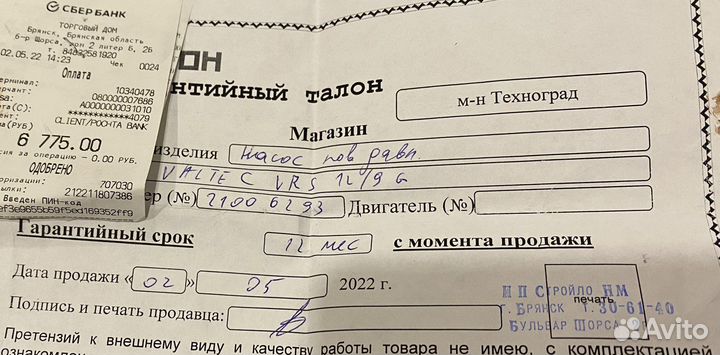 СБЕРБАНК
ТОРГОВЫЙ ДОМ
Брянск, Брянская область
б-р Щорса, дом 2 литер Б, 2Б
т. 84832581920
02.05.22 14:23 Чек 0024
Оплата
10340478
080000007686
A0000000031010
************4079
CLIENT/POCHTA BANK
(РУБ)
6 775.00
за операцию - 0.00 РУБ.
ОДОБРЕНО
707030
212211807386
Введен ПИН-код
талон
м-н Техноград
Магазин
изделия Насос пов давл.
VALTEC VRS 12/9G
(№) 21006293 Двигатель (№)
Гарантийный срок 12 мес с момента продажи
Дата продажи «02» 05 2022 г.
Подпись и печать продавца:
печать
ИП Стройло НМ
г. Брянск т. 30-61-40
Бульвар Щорса
Претензий к внешнему виду и качеству работы товара не имею, с комплектацией
Avito